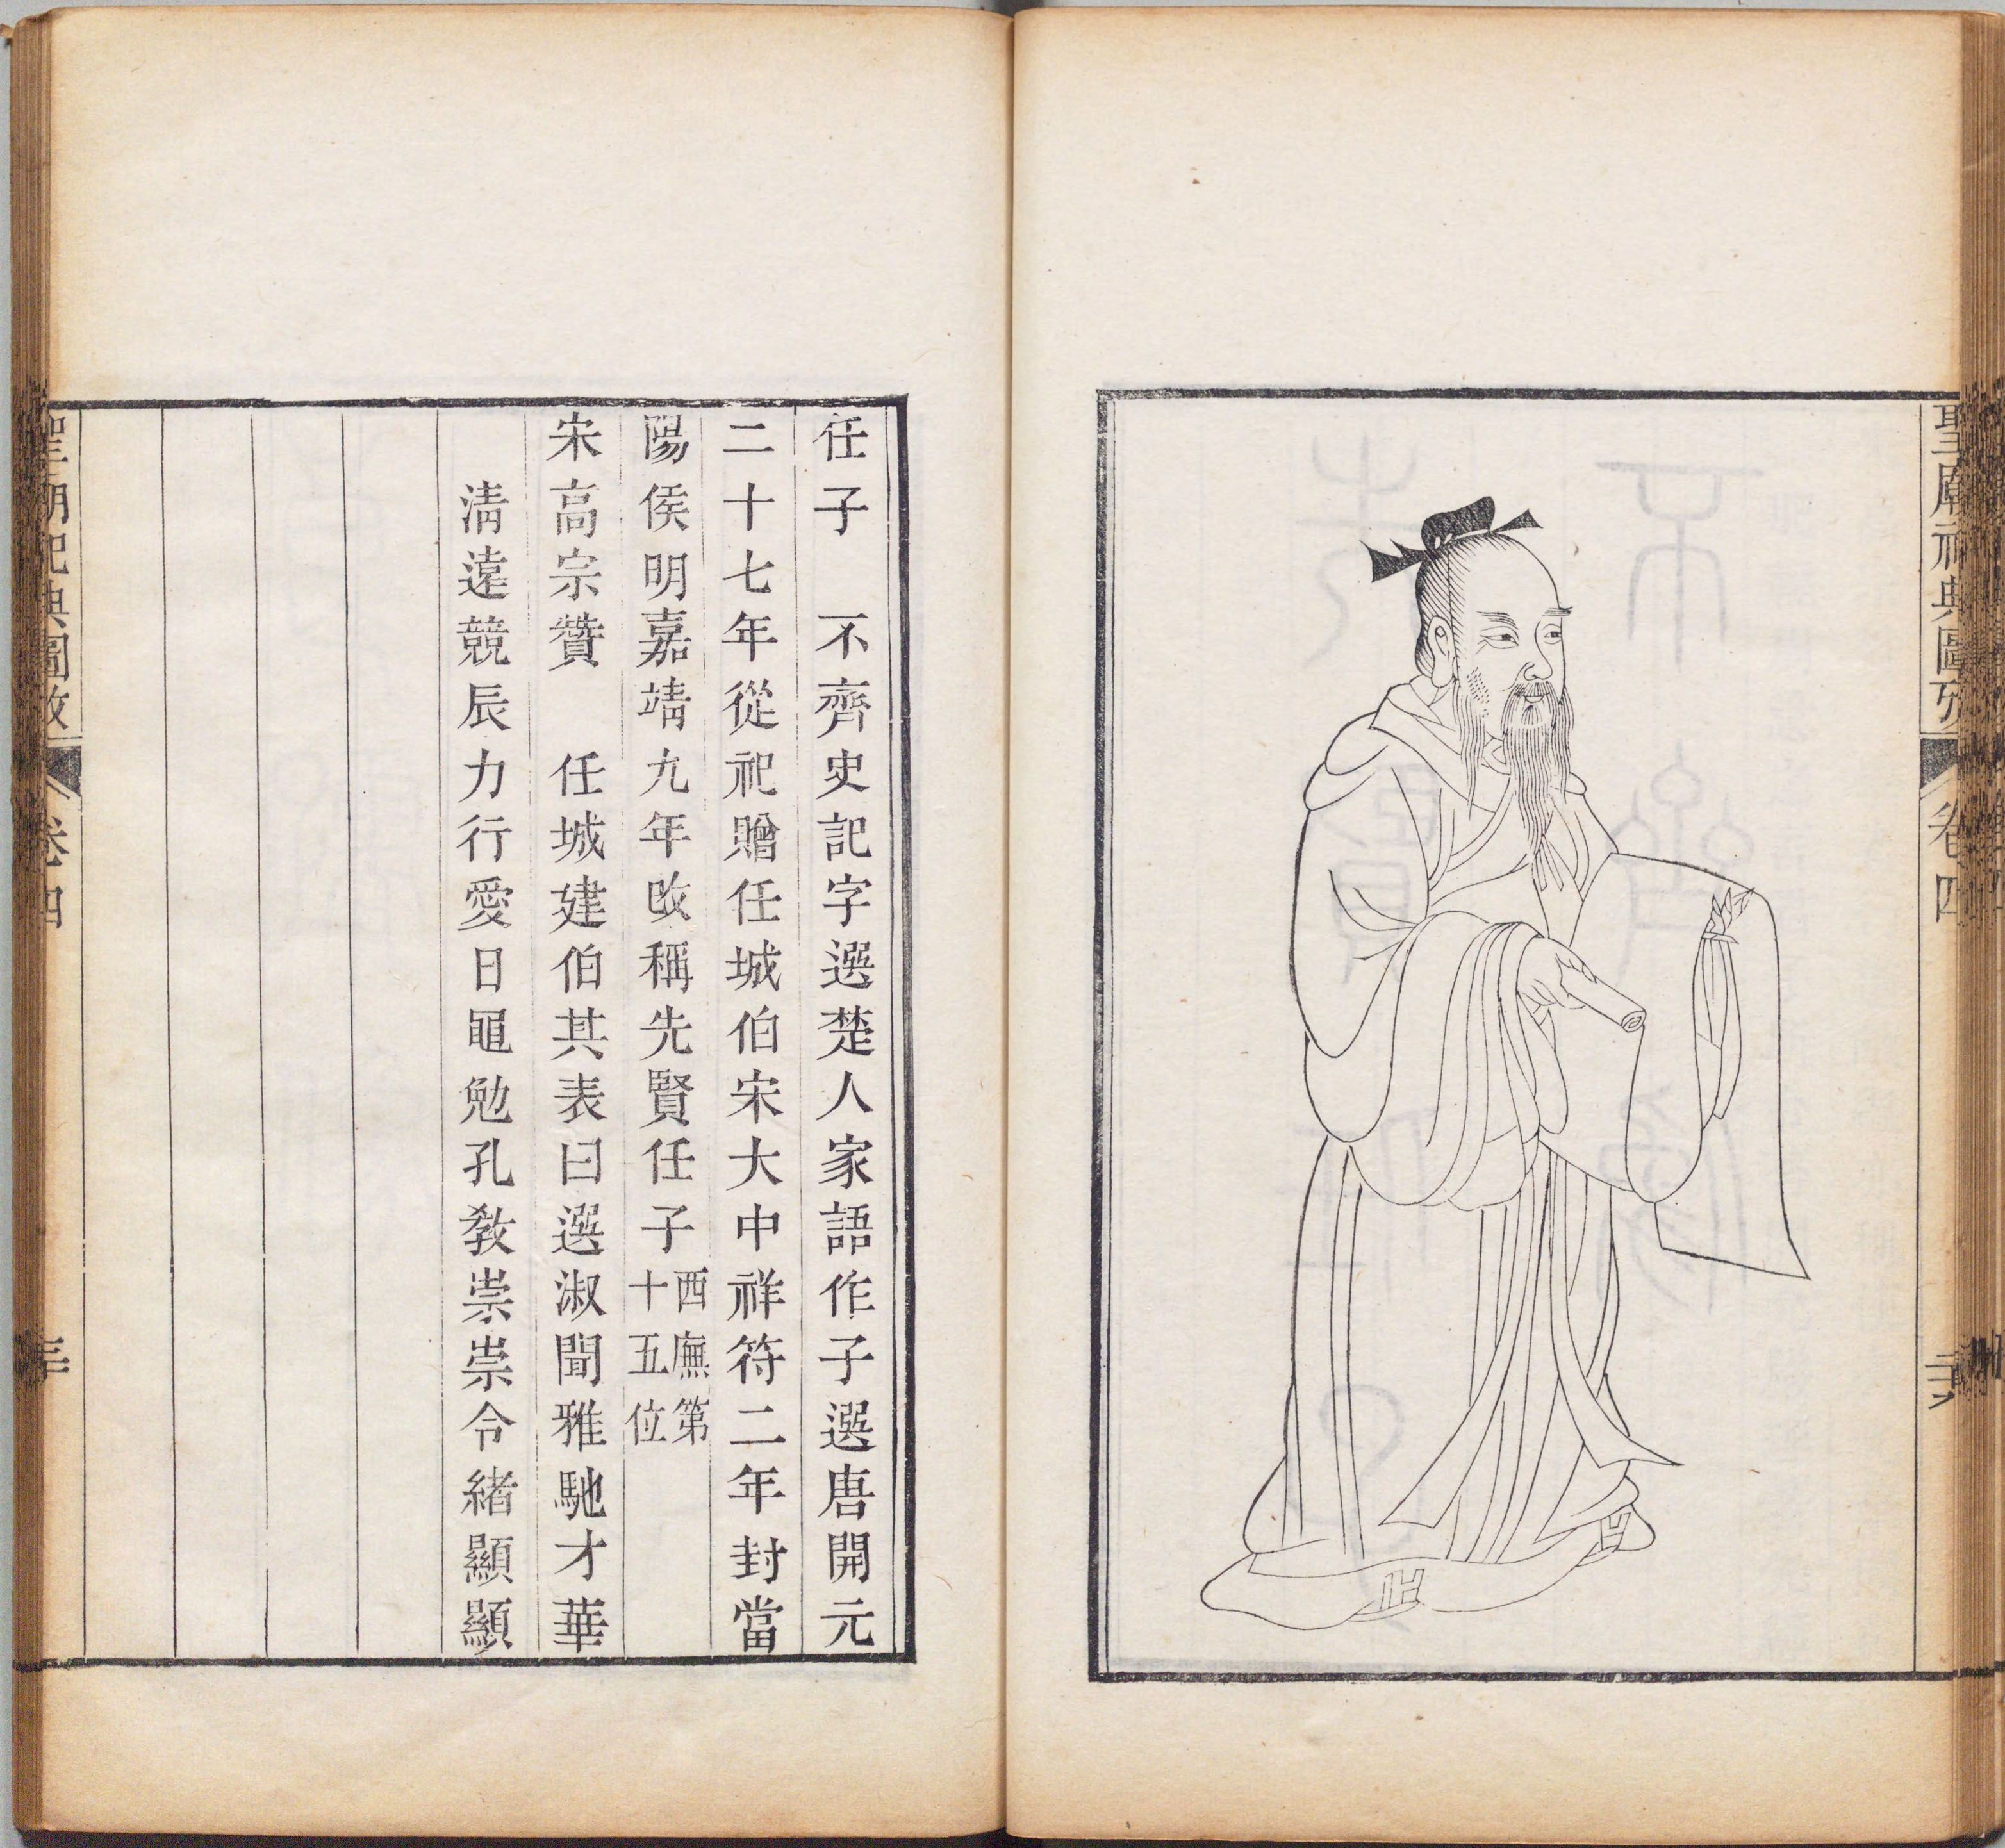 聖廟祀典圖攷
卷四
任子　不齊史記字選楚人家語作子選唐開元
二十七年從祀贈任城伯宋大中祥符二年封當
陽侯明嘉靖九年改稱先賢任子西廡第
十五位
宋高宗贊　任城建伯其表曰選淑聞雅馳才華
清遠競辰力行愛日黽勉孔教崇崇令緒顯顯
聖廟祀典圖攷
卷四